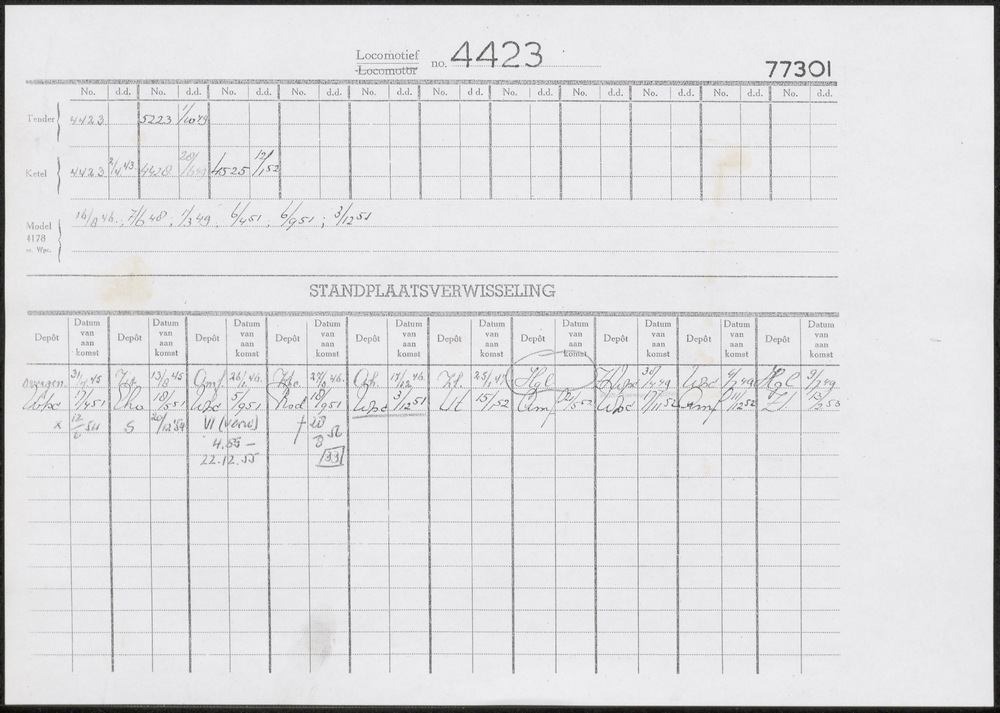 Locomotief
Locomotor no. 4423
77301
No. d.d. No. d.d. No. d.d. No. d.d. No. d.d. No. d.d. No. d.d. No. d.d. No. d.d. No. d.d.
Tender 4423 5223 1/10 49
Ketel 4423 2/4 43 4428 4525 12/1 52
Model 16/8 46, 7/6 48, 1/3 49, 6/4 51, 6/9 51, 3/12 51
4178
w. Wpc.
STANDPLAATSVERWISSELING
Depôt Datum van aan komst Depôt Datum van aan komst Depôt Datum van aan komst Depôt Datum van aan komst Depôt Datum van aan komst Depôt Datum van aan komst Depôt Datum van aan komst Depôt Datum van aan komst Depôt Datum van aan komst Depôt Datum van aan komst
overgen. 31/7 45 13/8 45 Amf. 26/1 46. 27/8 46. 17/12 46. Zl. 25/1 47 Hgl 30/1 49 Wpc 4/2 49 Hgl 3/2 49
Wpc 17/4 51 Eho 18/5 51 Wpc 5/9 51 Rsd 18/9 51 Wpc 3/12 51 Ut 15/1 52 Amf 5 52 Wpc 17/11 52 Amf 11/12 52 Zl 13/2 53
x 12/6 54 S 20/12 54 VI (Verw) † 28/8 56
4.55 – 33
22.12.55